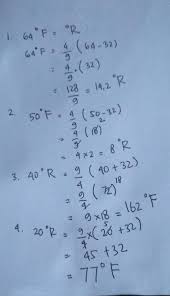 1. 64°F = °R
64°F = 4/9 (64-32)
= 4/9 · (32)
= 128/9 = 14,2 °R
2. 50°F = 4/9 (50-32)
= 4/9 (18) 2
= 4×2 = 8°R
3. 40°R = 9/4 (40+32)
= 9/4 (72) 18
= 9×18 = 162°F
4. 20°R = 9/4 ×(20 5 +32)
= 45 + 32
= 77°F